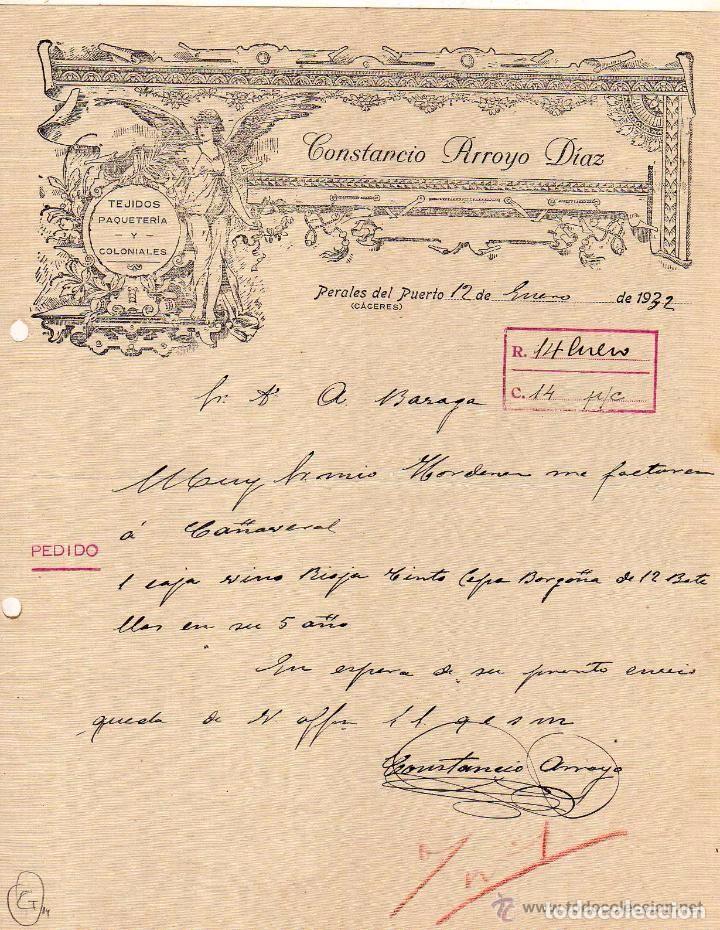 Constancio Arroyo Díaz
TEJIDOS
PAQUETERÍA
- Y -
COLONIALES
Perales del Puerto 12 de Enero de 1932
(CÁCERES)
R. 14 Enero
C. 14
Sr. Dn A. Baraga
Muy Sr mio Hordenen me facturen
PEDIDO
á Cañaveral
1 caja vino Rioja tinto Cepa Borgoña de 12 Bote
llas en su 5 año
En espera de su pronto envio
queda de V
Constancio Arroyo
G
www.todocoleccion.net
todocoleccion